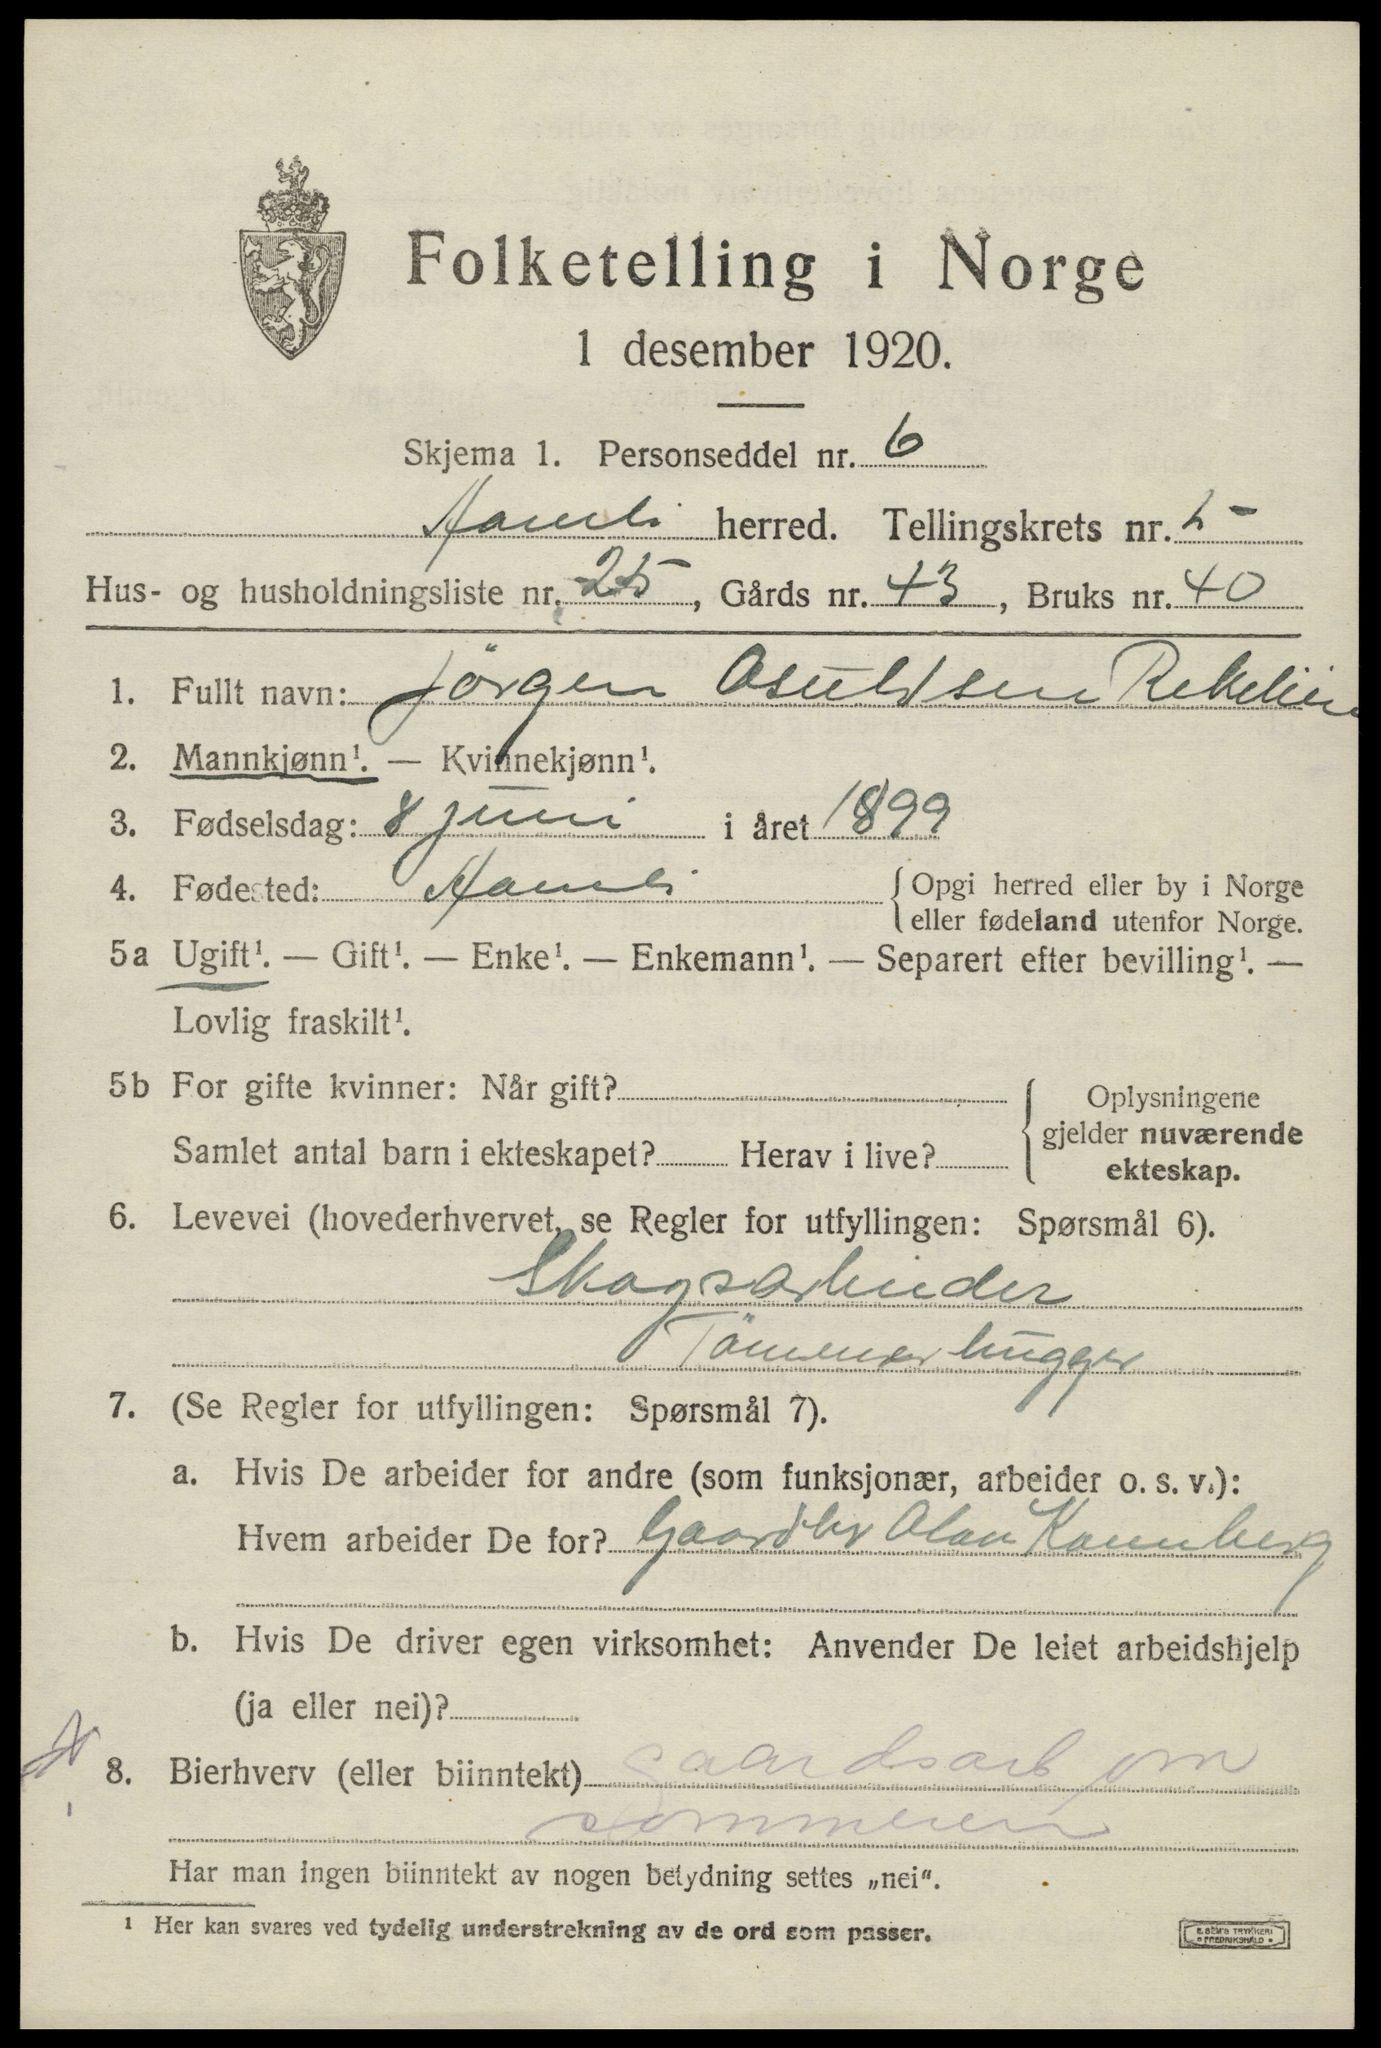 Folketelling i Norge
1 desember 1920.
Skjema 1. Personseddel nr. 6
Aamli herred. Tellingskrets nr.
Hus- og husholdningsliste nr. 25, Gårds nr. 43, Bruks nr. 40
1. Fullt navn: Jörgen Osuldsen
2. Mannkjønn¹. — Kvinnekjønn¹.
3. Fødselsdag: 8 juni i året 1899
4. Fødested: Aamli {Opgi herred eller by i Norge
eller fødeland utenfor Norge.
5a Ugift¹. — Gift¹. — Enke¹. — Enkemann¹. — Separert efter bevilling¹. —
Lovlig fraskilt¹.
5b For gifte kvinner: Når gift? Oplysningene
gjelder nuværende
Samlet antal barn i ekteskapet? Herav i live?
ekteskap.
6. Levevei (hovederhvervet, se Regler for utfyllingen: Spørsmål 6).
Skogsarbeider
Tömmerhugger
7. (Se Regler for utfyllingen: Spørsmål 7).
a. Hvis De arbeider for andre (som funksjonær, arbeider o. s. v.):
Hvem arbeider De for? Gaardbr Olav
b. Hvis De driver egen virksomhet: Anvender De leiet arbeidshjelp
(ja eller nei)?
8. Bierhverv (eller biinntekt) gaardsarb om
sommeren
Har man ingen biinntekt av nogen betydning settes „nei“.
¹ Her kan svares ved tydelig understrekning av de ord som passer.
E. SEM'S TRYKKERI
FREDRIKSHALD